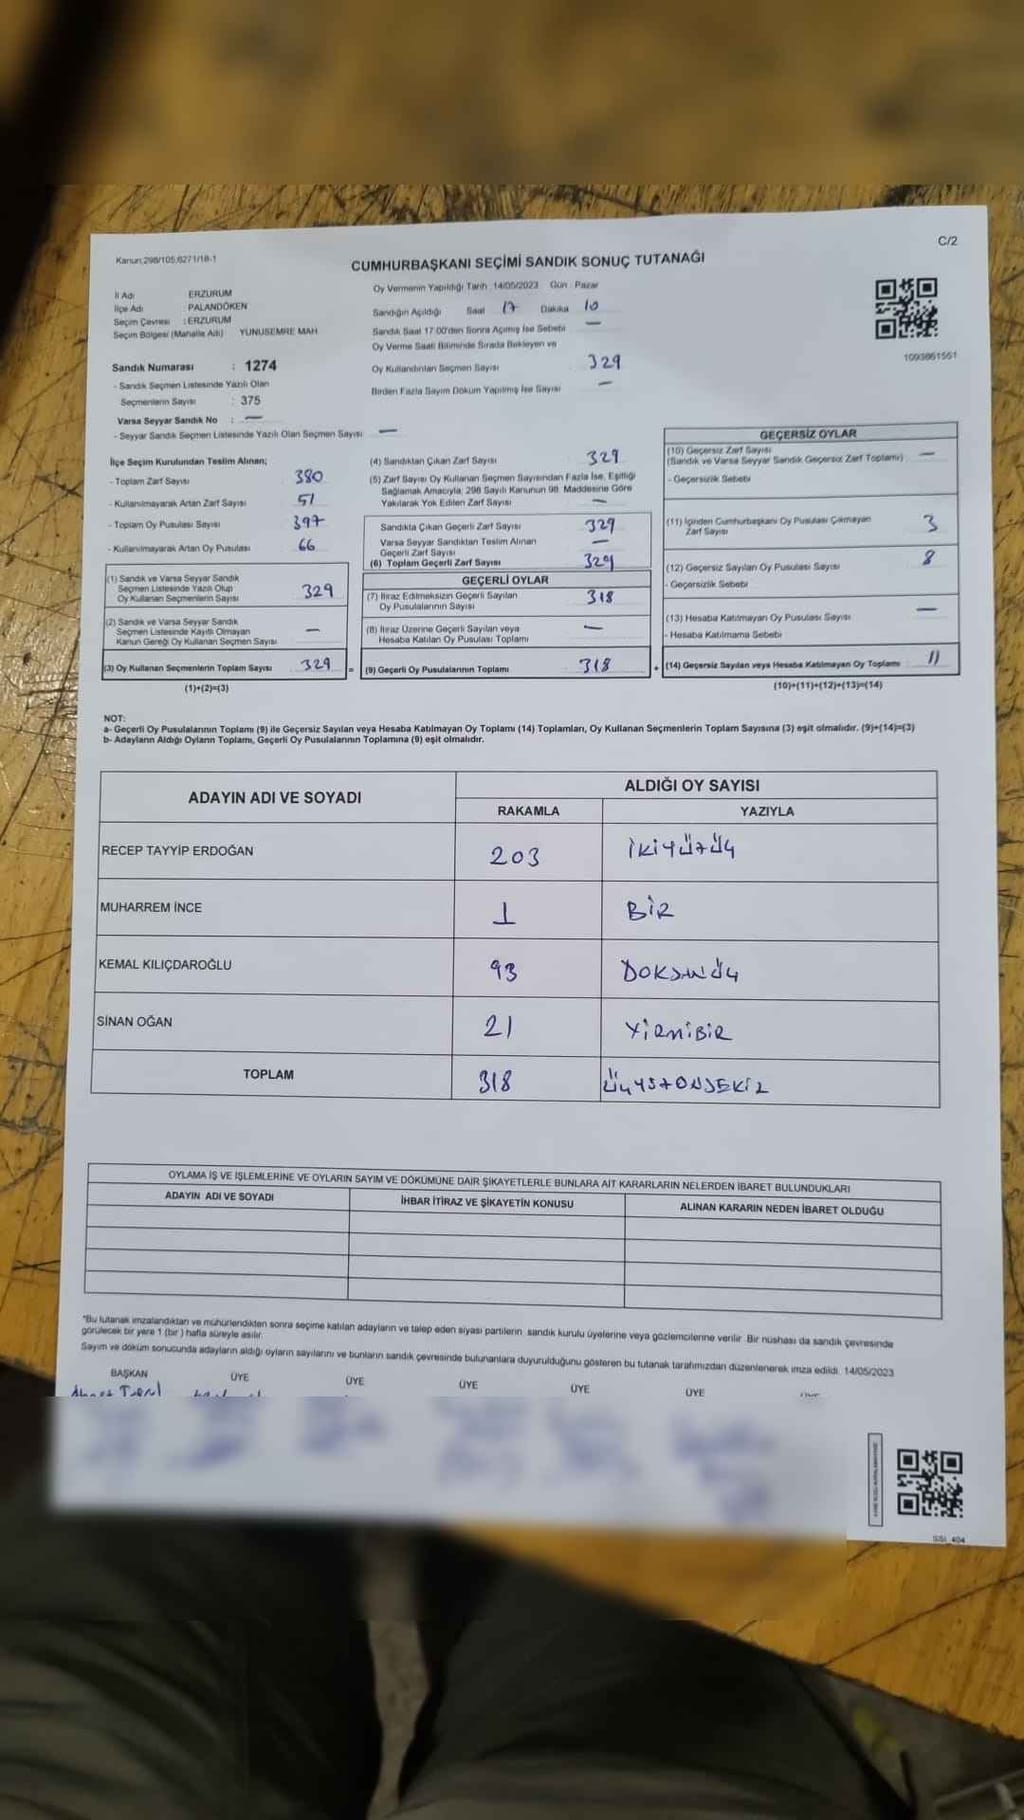 C/2
Kanun:298/105,6271/18-1
CUMHURBAŞKANI SEÇİMİ SANDIK SONUÇ TUTANAĞI
İl Adı : ERZURUM
İlçe Adı : PALANDÖKEN
Seçim Çevresi : ERZURUM
Seçim Bölgesi (Mahalle Adı) YUNUSEMRE MAH.
Oy Vermenin Yapıldığı Tarih : 14/05/2023 Gün : Pazar
Sandığın Açıldığı Saat 17 Dakika 10
Sandık Saat 17:00'den Sonra Açımış İse Sebebi —
Oy Verme Saati Bitiminde Sırada Bekleyen ve
Oy Kullandırılan Seçmen Sayısı 329
Birden Fazla Sayım Döküm Yapılmış İse Sayısı —
1093861551
Sandık Numarası : 1274
- Sandık Seçmen Listesinde Yazılı Olan
Seçmenlerin Sayısı : 375
Varsa Seyyar Sandık No : —
- Seyyar Sandık Seçmen Listesinde Yazılı Olan Seçmen Sayısı —
İlçe Seçim Kurulundan Teslim Alınan;
- Toplam Zarf Sayısı 380
- Kullanılmayarak Artan Zarf Sayısı 51
- Toplam Oy Pusulası Sayısı 397
- Kullanılmayarak Artan Oy Pusulası 66
(1) Sandık ve Varsa Seyyar Sandık
Seçmen Listesinde Yazılı Olup
Oy Kullanan Seçmenlerin Sayısı 329
(2) Sandık ve Varsa Seyyar Sandık
Seçmen Listesinde Kayıtlı Olmayan
Kanun Gereği Oy Kullanan Seçmen Sayısı —
(3) Oy Kullanan Seçmenlerin Toplam Sayısı 329 =
(1)+(2)=(3)
(4) Sandıktan Çıkan Zarf Sayısı 329
(5) Zarf Sayısı Oy Kullanan Seçmen Sayısından Fazla İse, Eşitliği
Sağlamak Amacıyla; 298 Sayılı Kanunun 98. Maddesine Göre
Yakılarak Yok Edilen Zarf Sayısı —
Sandıkta Çıkan Geçerli Zarf Sayısı 329
Varsa Seyyar Sandıktan Teslim Alınan
Geçerli Zarf Sayısı —
(6) Toplam Geçerli Zarf Sayısı 329
GEÇERLİ OYLAR
(7) İtiraz Edilmeksizin Geçerli Sayılan
Oy Pusulalarının Sayısı 318
(8) İtiraz Üzerine Geçerli Sayılan veya
Hesaba Katılan Oy Pusulası Toplamı —
(9) Geçerli Oy Pusulalarının Toplamı 318 +
GEÇERSİZ OYLAR
(10) Geçersiz Zarf Sayısı
(Sandık ve Varsa Seyyar Sandık Geçersiz Zarf Toplamı) —
- Geçersizlik Sebebi
(11) İçinden Cumhurbaşkanı Oy Pusulası Çıkmayan
Zarf Sayısı 3
(12) Geçersiz Sayılan Oy Pusulası Sayısı 8
- Geçersizlik Sebebi
(13) Hesaba Katılmayan Oy Pusulası Sayısı —
- Hesaba Katılmama Sebebi
(14) Geçersiz Sayılan veya Hesaba Katılmayan Oy Toplamı 11
(10)+(11)+(12)+(13)=(14)
NOT:
a- Geçerli Oy Pusulalarının Toplamı (9) ile Geçersiz Sayılan veya Hesaba Katılmayan Oy Toplamı (14) Toplamları, Oy Kullanan Seçmenlerin Toplam Sayısına (3) eşit olmalıdır. (9)+(14)=(3)
b- Adayların Aldığı Oyların Toplamı, Geçerli Oy Pusulalarının Toplamına (9) eşit olmalıdır.
ADAYIN ADI VE SOYADI
ALDIĞI OY SAYISI
RAKAMLA YAZIYLA
RECEP TAYYİP ERDOĞAN 203 İKİYÜZÜÇ
MUHARREM İNCE 1 BİR
KEMAL KILIÇDAROĞLU 93 DOKSANÜÇ
SİNAN OĞAN 21 YİRMİBİR
TOPLAM 318 ÜÇYSZONSEKİZ
OYLAMA İŞ VE İŞLEMLERİNE VE OYLARIN SAYIM VE DÖKÜMÜNE DAİR ŞİKAYETLERLE BUNLARA AİT KARARLARIN NELERDEN İBARET BULUNDUKLARI
ADAYIN ADI VE SOYADI İHBAR İTİRAZ VE ŞİKAYETİN KONUSU ALINAN KARARIN NEDEN İBARET OLDUĞU
*Bu tutanak imzalandıktan ve mühürlendikten sonra seçime katılan adayların ve talep eden siyasi partilerin sandık kurulu üyelerine veya gözlemcilerine verilir. Bir nüshası da sandık çevresinde
görülecek bir yere 1 (bir) hafta süreyle asılır.
Sayım ve döküm sonucunda adayların aldığı oyların sayılarını ve bunların sandık çevresinde bulunanlara duyurulduğunu gösteren bu tutanak tarafımızdan düzenlenerek imza edildi. 14/05/2023
BAŞKAN ÜYE ÜYE ÜYE ÜYE ÜYE